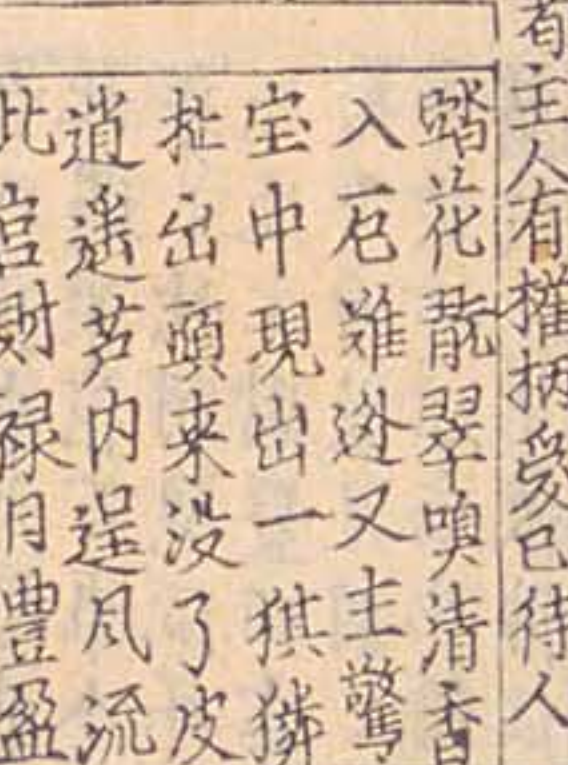 主人有權柄愛已待人
踏花翫翠嗅清香
入石難迯又主驚
宝中現出一猉獜
扯出頭来没了皮
逍遥芦内逞風流
此宫財禄月豐盈